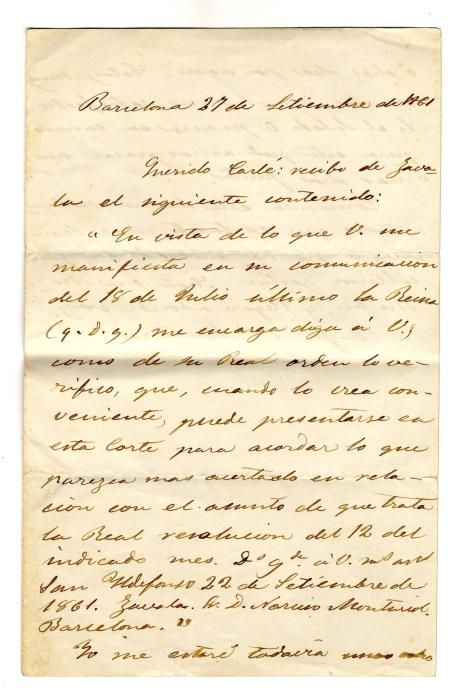 Barcelona 27 de Setiembre de 1861
Querido Carlé: recibo de Zava
la el siguiente contenido:
"En vista de lo que V. me
manifiesta en su comunicacion
del 18 de Julio último la Reina
(q. D. g.) me encarga diga á V.,
como de su Real orden lo ve-
rifico, que, cuando lo crea con-
veniente, puede presentarse en
esta Corte para acordar lo que
parezca mas acertado en rela-
cion con el asunto de que trata
la Real resolucion del 12 del
indicado mes. Ds. gde. á V. ms. as.
San Ildefonso 22 de Setiembre de
1861. Zavala. Sr. D. Narciso Monturiol.
Barcelona."
Yo me estaré todavía unos